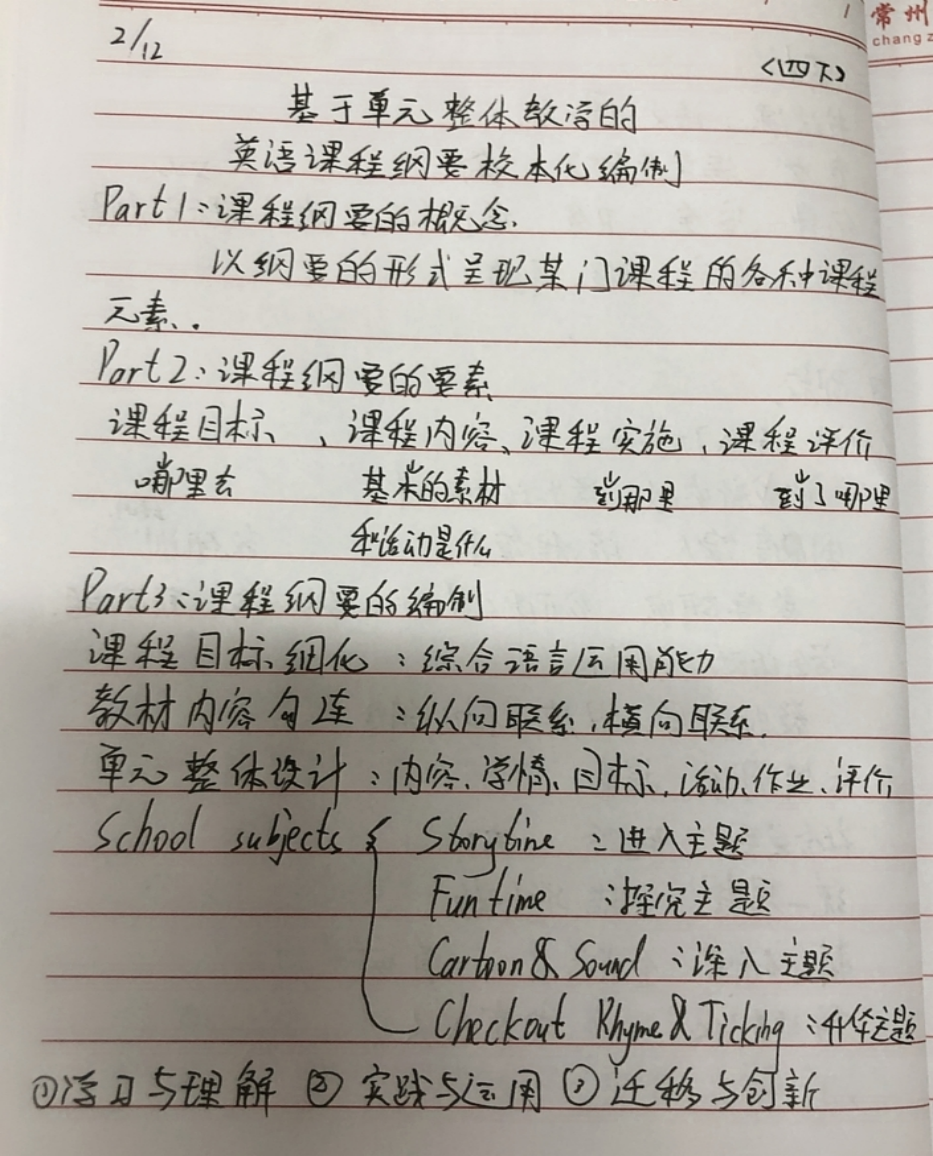 常州
chang z
2/12
(四下)
基于单元整体教学的
英语课程纲要校本化编制
Part1:课程纲要的概念.
以纲要的形式呈现某门课程的各种课程
元素..
Part2:课程纲要的要素
课程目标、课程内容、课程实施、课程评价
哪里去 基本的素材 到那里 到了哪里
和活动是什么
Part3:课程纲要的编制
课程目标细化:综合语言运用能力
教材内容勾连:纵向联系,横向联系.
单元整体设计:内容、学情、目标、活动、作业、评价
School subjects { Storytime:进入主题
Fun time:探究主题
Cartoon & Sound:深入主题
Checkout Rhyme & Ticking:升华主题
①学习与理解 ② 实践与运用 ③ 迁移与创新